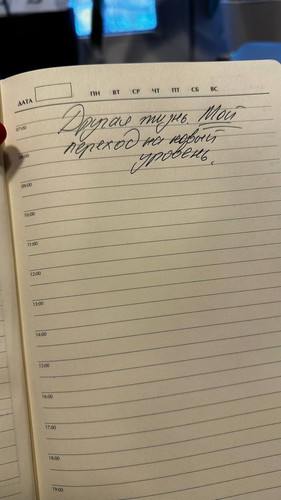 ДАТА ПН ВТ СР ЧТ ПТ СБ ВС
07:00
Другая жизнь. Мой
переход на новый
08:00
уровень.
09:00
10:00
11:00
12:00
13:00
14:00
15:00
16:00
17:00
18:00
19:00